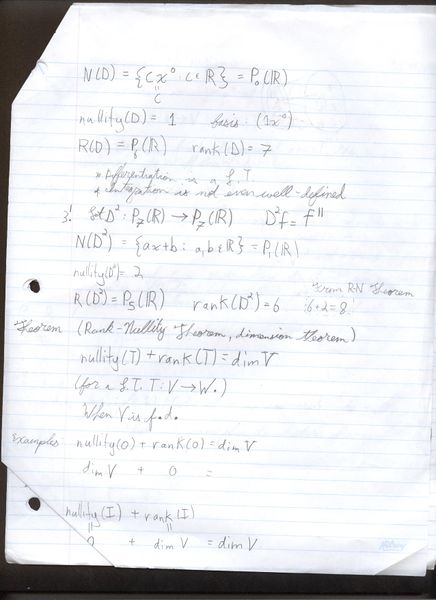 N(D) = {cx⁰ : c∈ℝ} = P₀(ℝ)
" c
nullity(D) = 1 basis: (1x⁰)
R(D) = P₆(ℝ) rank(D) = 7
* Differentiation is a L.T.
* integration is not even well-defined
3! Let D² : P₇(ℝ) → P₇(ℝ) D²f = f"
N(D²) = {ax+b : a,b∈ℝ} = P₁(ℝ)
nullity(D²) = 2
R(D²) = P₅(ℝ) rank(D²) = 6 From R-N Theorem 6+2=8
Theorem (Rank-Nullity Theorem, dimension theorem)
nullity(T) + rank(T) = dim V
(for a L.T. T: V → W.)
When V is f.d.
Examples nullity(0) + rank(0) = dim V
dim V + 0 =
nullity(I) + rank(I)
" "
0 + dim V = dim V